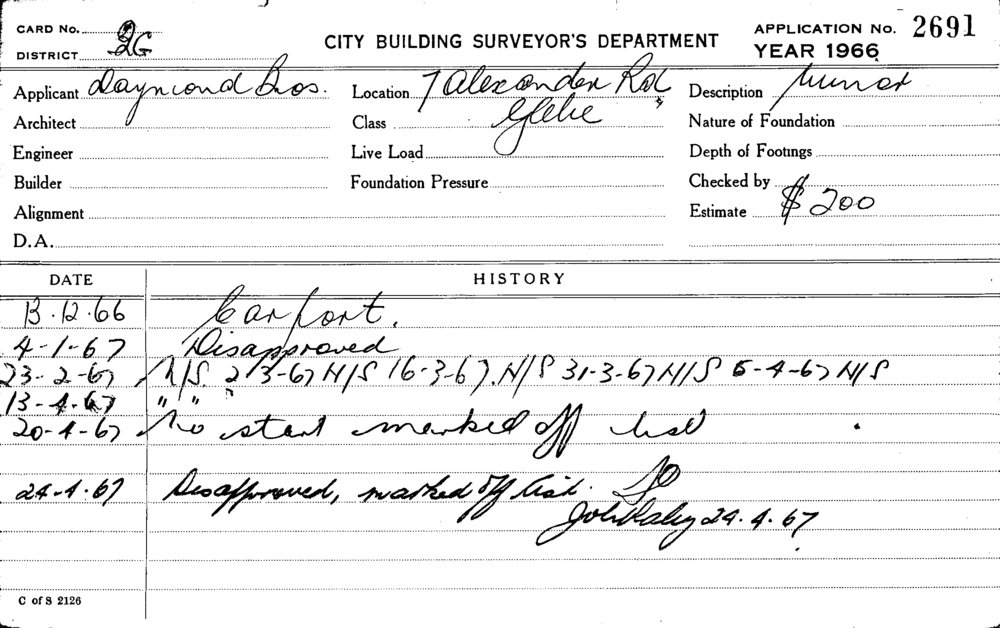 CARD No. 2G
DISTRICT
CITY BUILDING SURVEYOR'S DEPARTMENT
APPLICATION No. 2691
YEAR 1966
Applicant Daymond Bros.
Location 7 Alexander Rd
Description Minor
Architect
Class Glebe
Nature of Foundation
Engineer
Live Load
Depth of Footings
Builder
Foundation Pressure
Checked by
Alignment
Estimate $ 200
D.A.
DATE HISTORY
13.12.66 Carport.
4-1-67 Disapproved
23-2-67 N/S 2/3-67 N/S 16-3-67. N/S 31-3-67 N/S 5-4-67 N/S
13-4-67 " "
20-4-67 No start marked off list
24-4-67 Disapproved, marked off list.
24.4.67
C of S 2126